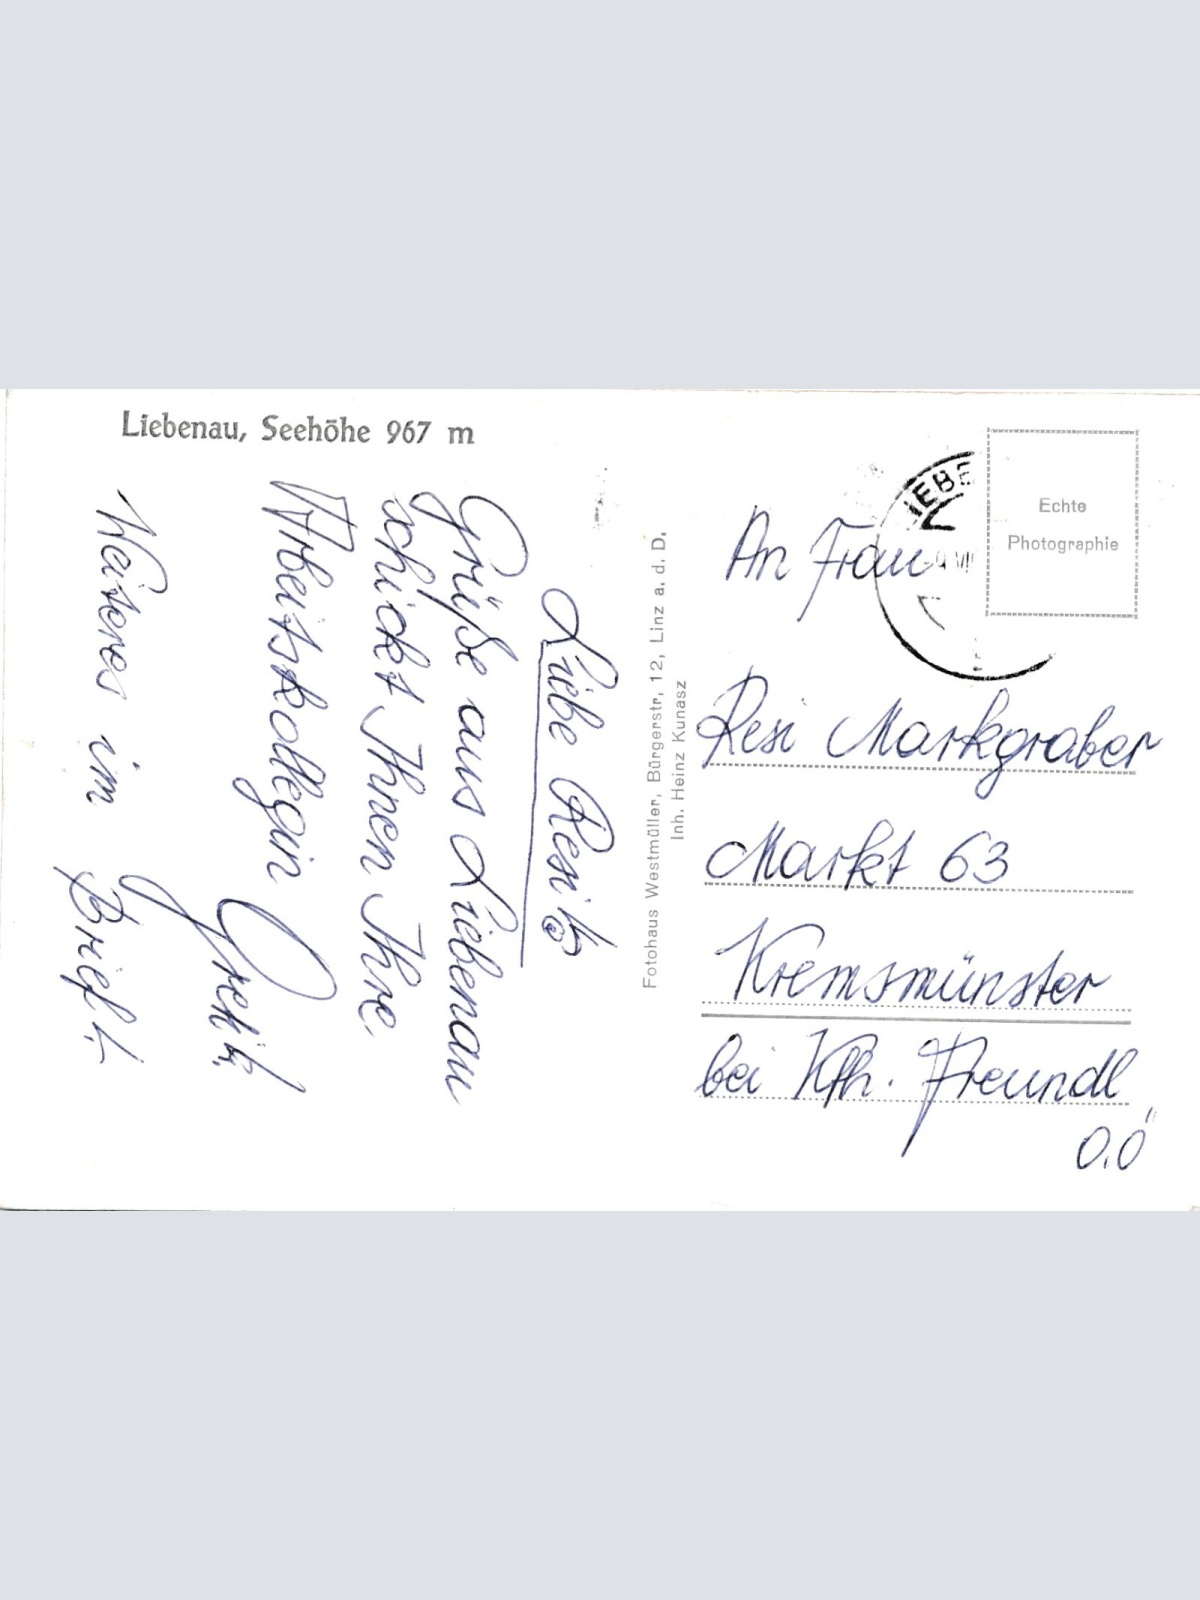 Liebenau, Seehöhe 967 m
Liebe Resi!
Grüße aus Liebenau
schickt Ihnen Ihre
Arbeitskollegin
Gretl!
Weiteres im Brief!
Fotohaus Westmüller, Bürgerstr, 12, Linz a. d. D.
Inh. Heinz Kunasz
IEBE
9 VII
Echte
Photographie
An Frau
Resi Markgraber
Markt 63
Kremsmünster
bei Kfh. Freundl
O.Ö